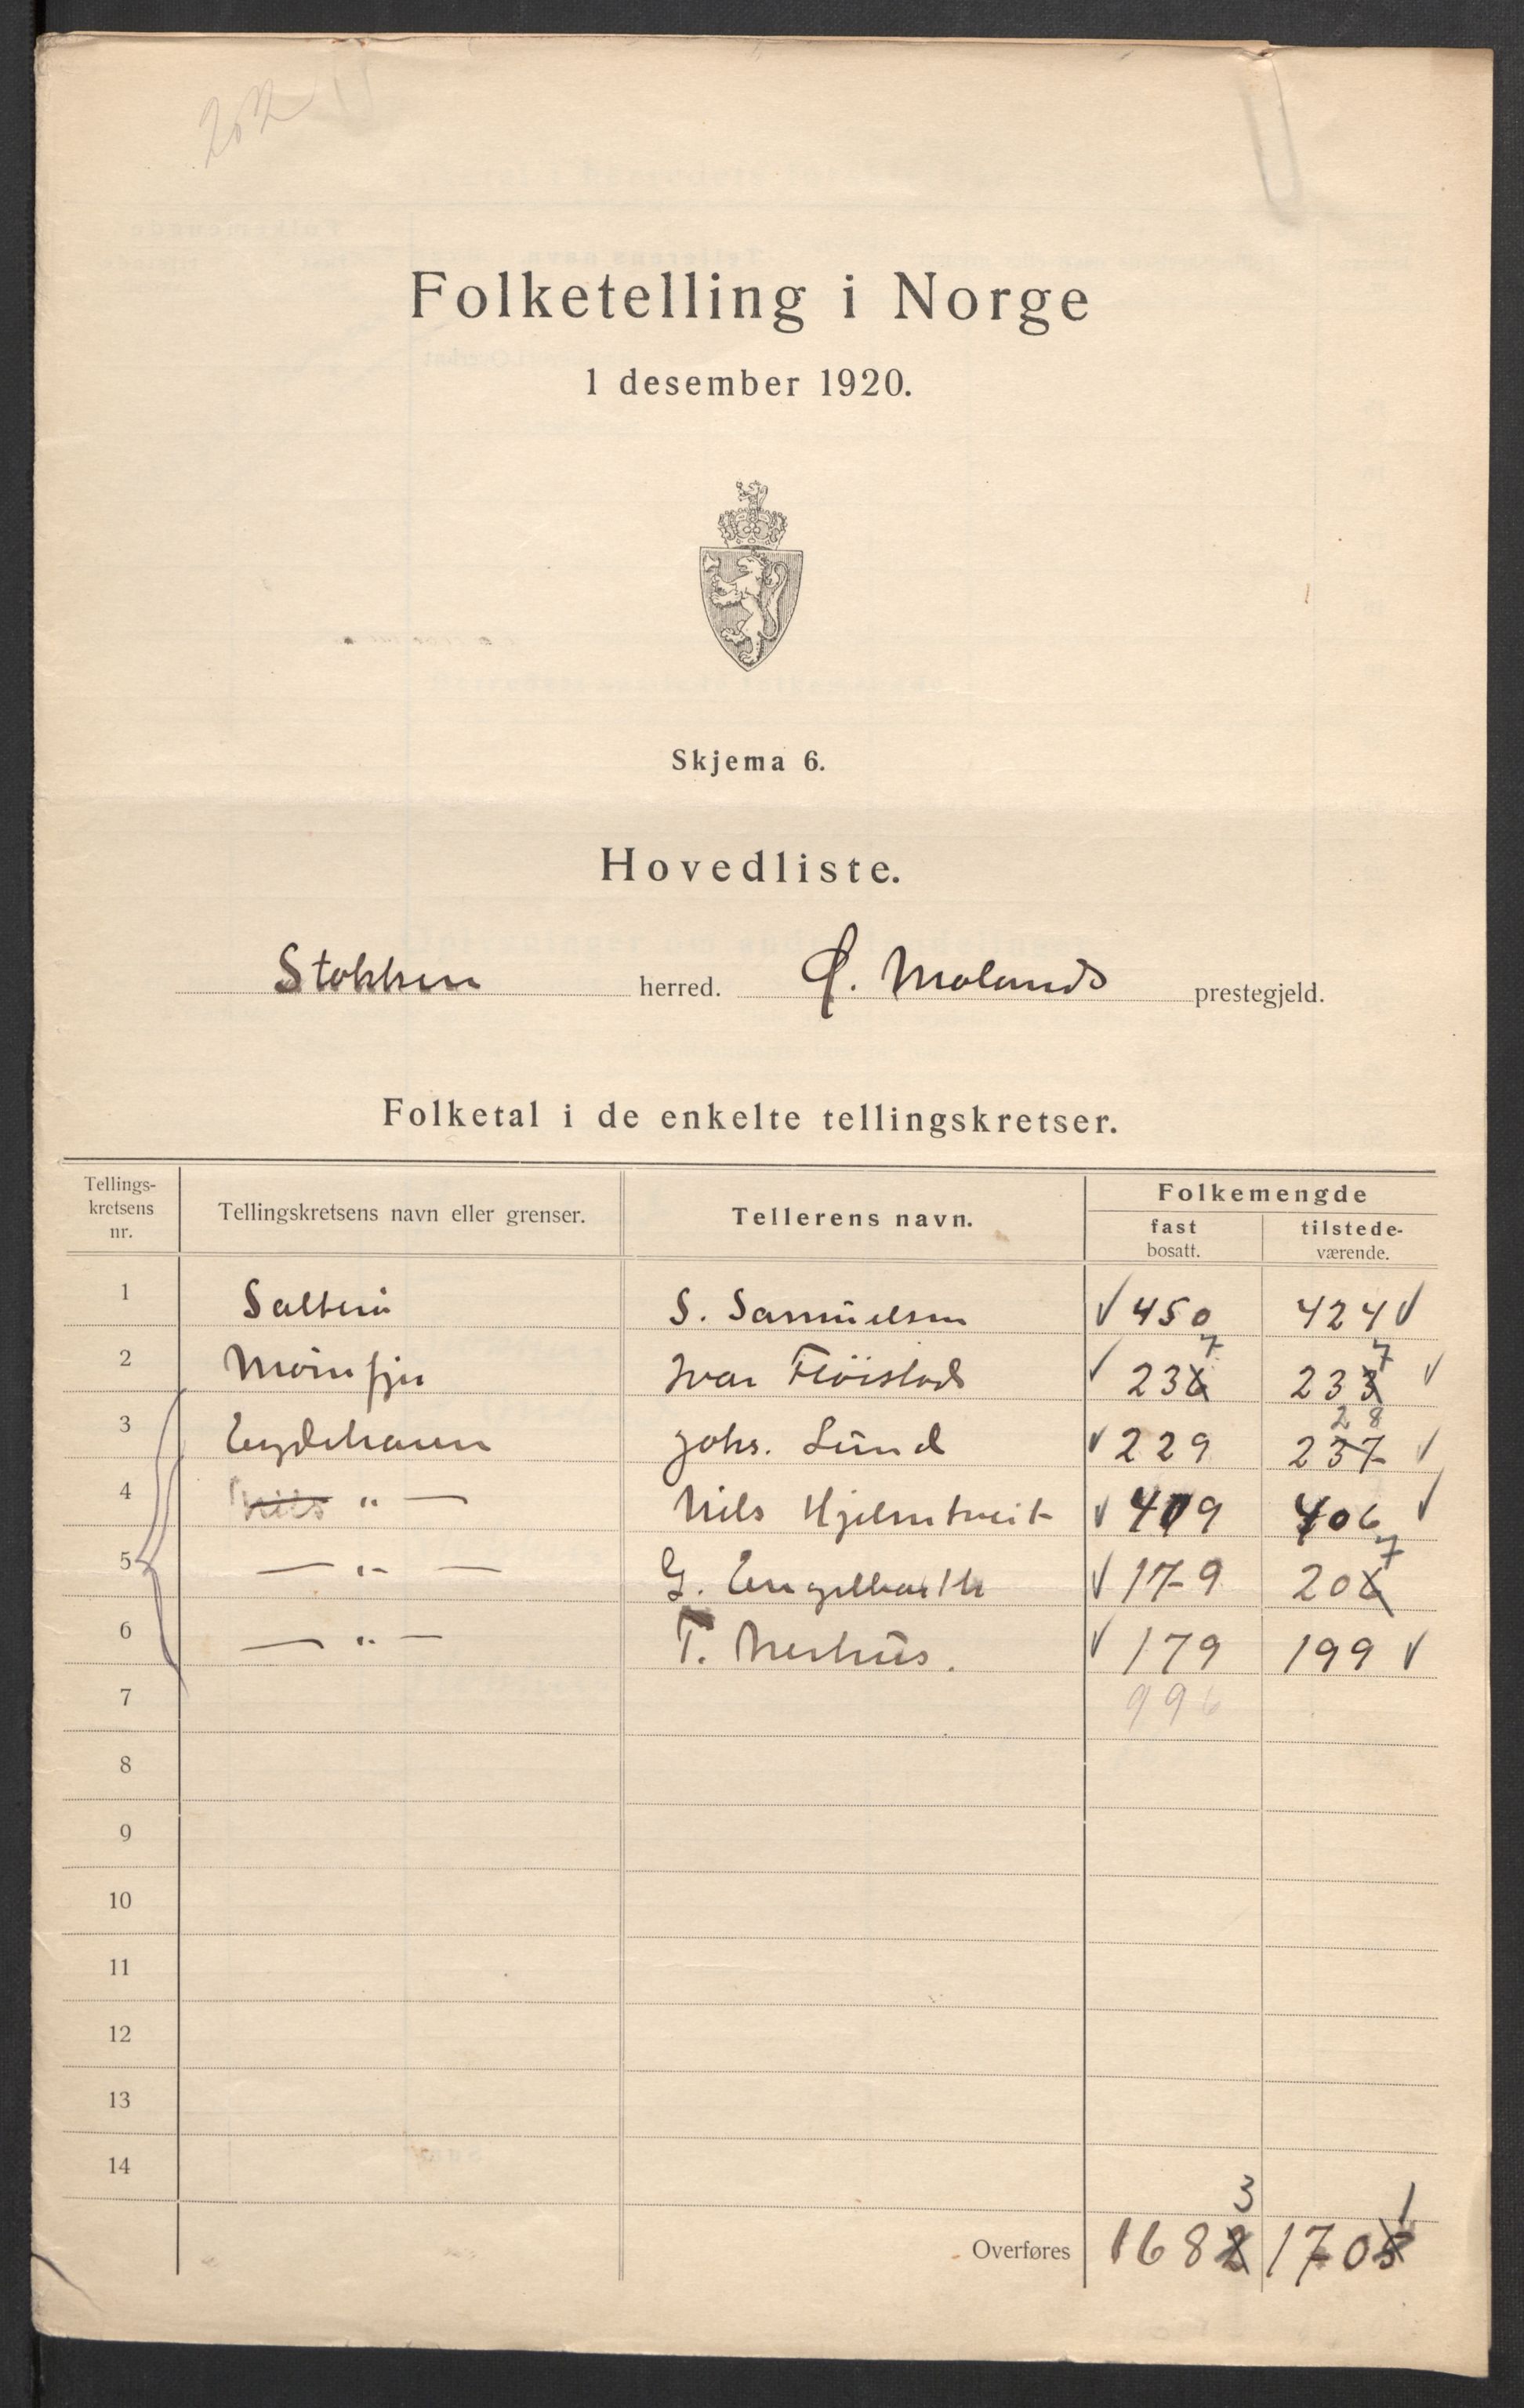 Folketelling i Norge
1 desember 1920.
Skjema 6.
Hovedliste.
Stokken herred. Ø. Molands prestegjeld.
Folketal i de enkelte tellingskretser.
Tellings-kretsens nr. Tellingskretsens navn eller grenser. Tellerens navn. Folkemengde
fast bosatt. tilstede-værende.
1 Salterø S. Samuelsen √ 450 424 √
7 7
2 Ivar Fløistad √ 236 233 √
28
3 Eydehavn Johs. Lund √ 229 237 √
4 Nils " — Nils Hjelmtveit √ 409 406 √
7
5 — " — G. Engelbarth √ 179 206
6 — " — T. Nerhus. √ 179 199 √
7 996
8
9
10
11
12
13
14
3 1
Overføres 1682 1705